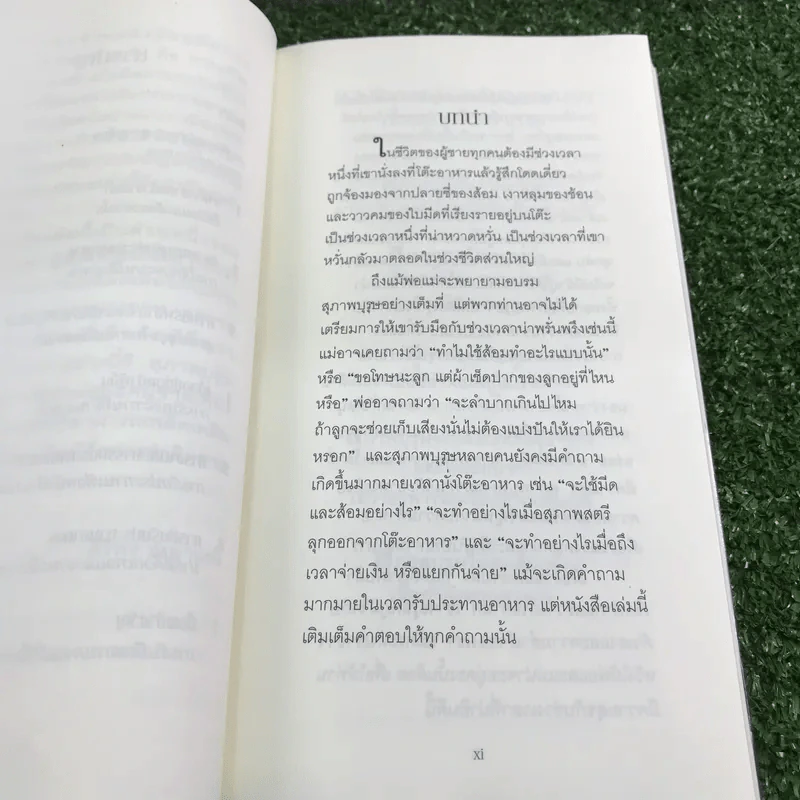 บทนำ
ในชีวิตของผู้ชายทุกคนต้องมีช่วงเวลา
หนึ่งที่เขานั่งลงที่โต๊ะอาหารแล้วรู้สึกโดดเดี่ยว
ถูกจ้องมองจากปลายซี่ของส้อม เงาหลุมของช้อน
และวาวคมของใบมีดที่เรียงรายอยู่บนโต๊ะ
เป็นช่วงเวลาหนึ่งที่น่าหวาดหวั่น เป็นช่วงเวลาที่เขา
หวั่นกลัวมาตลอดในช่วงชีวิตส่วนใหญ่
ถึงแม้พ่อแม่จะพยายามอบรม
สุภาพบุรุษอย่างเต็มที่ แต่พวกท่านอาจไม่ได้
เตรียมการให้เขารับมือกับช่วงเวลาน่าพรั่นพรึงเช่นนี้
แม่อาจเคยถามว่า “ทำไมใช้ส้อมทำอะไรแบบนั้น”
หรือ “ขอโทษนะลูก แต่ผ้าเช็ดปากของลูกอยู่ที่ไหน
หรือ” พ่ออาจถามว่า “จะลำบากเกินไปไหม
ถ้าลูกจะช่วยเก็บเสียงนั่นไม่ต้องแบ่งปันให้เราได้ยิน
หรอก” และสุภาพบุรุษหลายคนยังคงมีคำถาม
เกิดขึ้นมากมายเวลานั่งโต๊ะอาหาร เช่น “จะใช้มีด
และส้อมอย่างไร” “จะทำอย่างไรเมื่อสุภาพสตรี
ลุกออกจากโต๊ะอาหาร” และ “จะทำอย่างไรเมื่อถึง
เวลาจ่ายเงิน หรือแยกกันจ่าย” แม้จะเกิดคำถาม
มากมายในเวลารับประทานอาหาร แต่หนังสือเล่มนี้
เติมเต็มคำตอบให้ทุกคำถามนั้น
xi